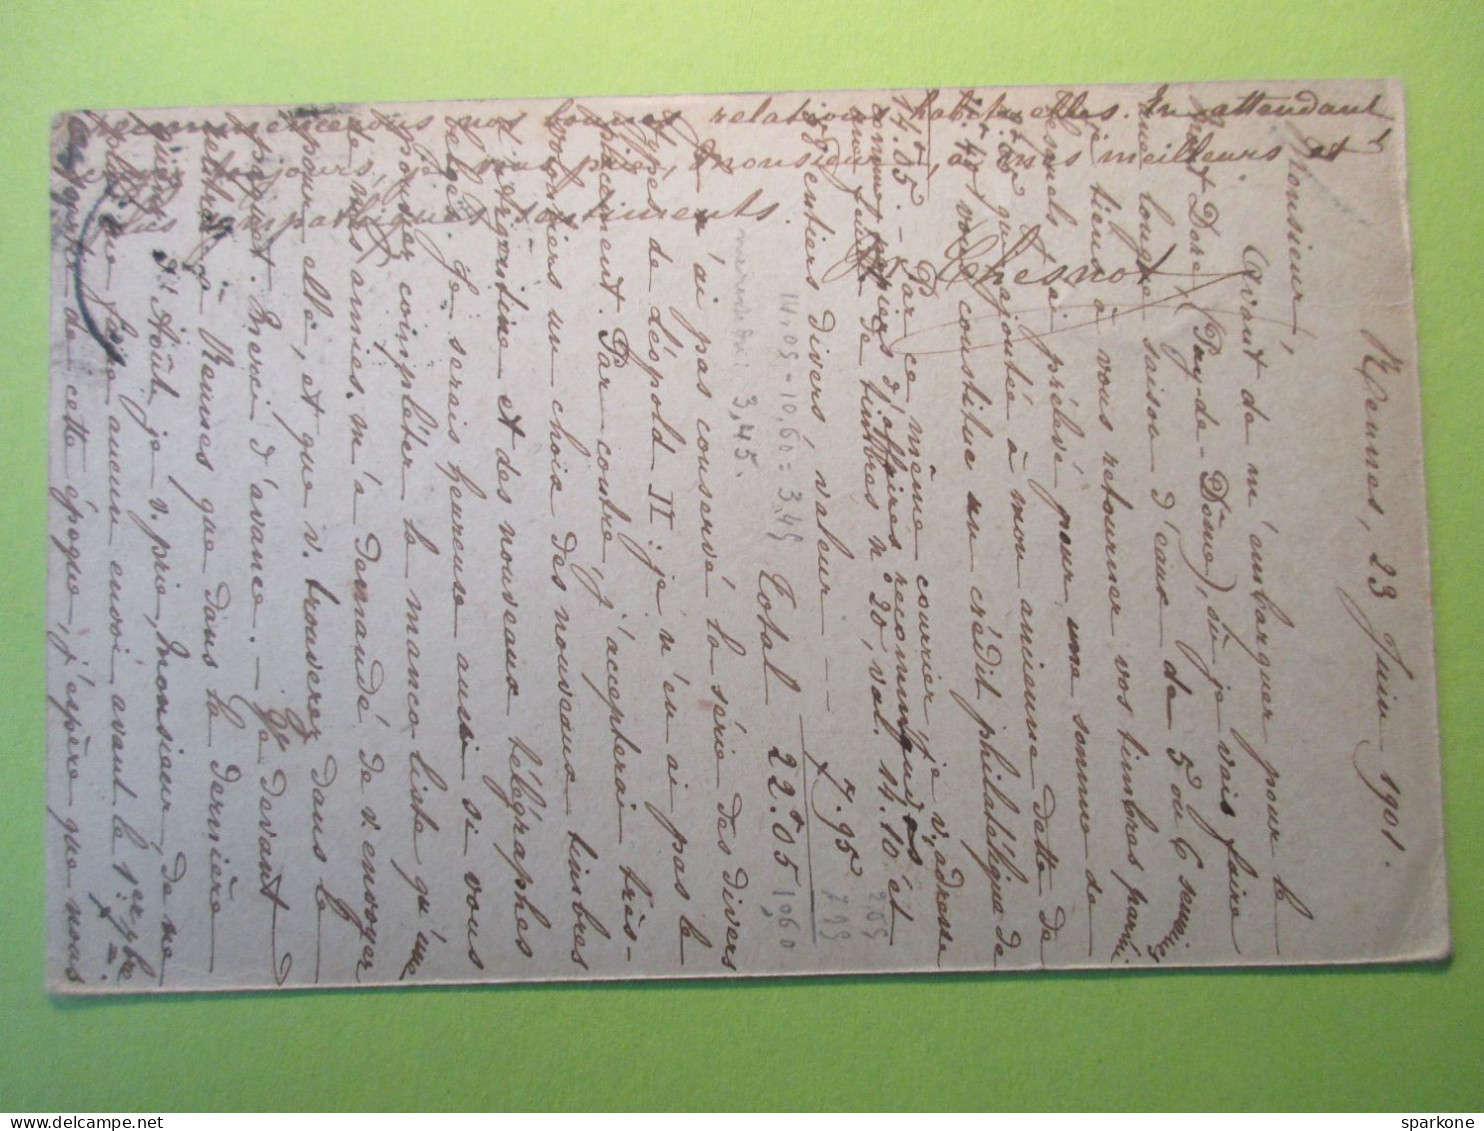 Rennes, 23 Juin 1901.
Monsieur,
Avant de m'embarquer pour le
Mont Dore, (Puy-de-Dôme), où je vais faire
une longue saison d'eaux de 5 ou 6 semaines
je tiens à vous retourner vos timbres parmi
lesquels j'ai prélevé pour une somme de
qu'ajoutée à mon ancienne dette de
vous constitue un crédit philatélique de
14.05 - Par ce même courrier je v. adresse
comme papiers d'affaires recommandés
de timbres n° 20, val. 14.10 et
entiers divers, valeur -- 7.95
Total 22.05
14.05 - 10,60 = 3.45
10,60
3,45.
2.65
7 95
Je n'ai pas conservé la série des divers
types de Léopold II: je n'en ai pas le
placement. Par contre, j'accepterai très-
volontiers un choix des nouveaux timbres
d'Argentine et des nouveaux télégraphes
belges. Je serais heureux aussi si vous
pouviez compléter la manco-liste qu'une
de mes amies m'a demandé de v. envoyer
pour elle, et que v. trouverez dans le
paquet. Merci d'avance. - Ne devant
rentrer à Rennes que dans la dernière
d'Août, je v. prie, Monsieur, de ne
plus me faire aucun envoi avant le 1er 7bre.
A partir de cette époque, j'espère que nous
recommencerons nos bonnes relations habituelles. En attendant
toujours, je vous prie, Monsieur, à mes meilleurs et
plus sympathiques sentiments.